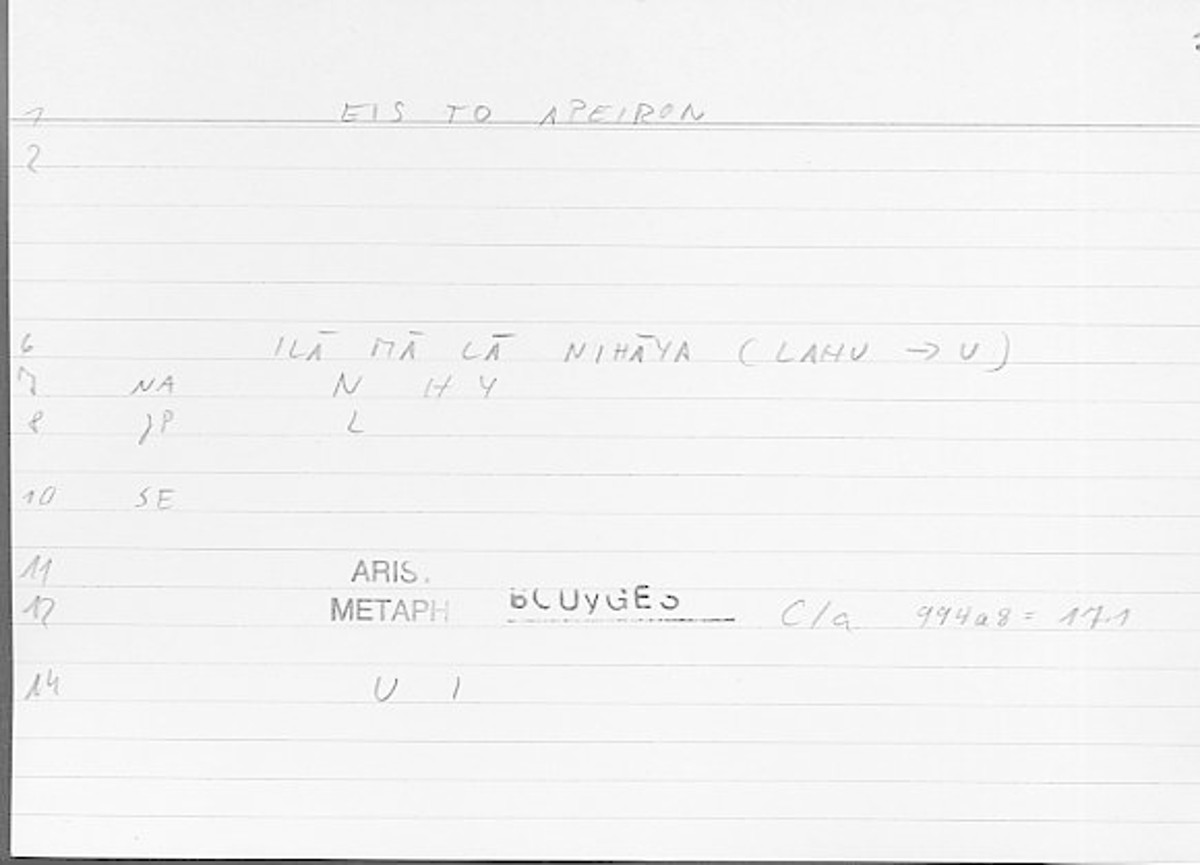 1 EIS TO APEIRON
2
6 ILĀ MĀ LĀ NIHĀYA (LAHU → U)
7 NA N H Y
8 JP L
10 SE
11 ARIS.
12 METAPH BOUYGES C/a 994a8 = 17.1
14 U I